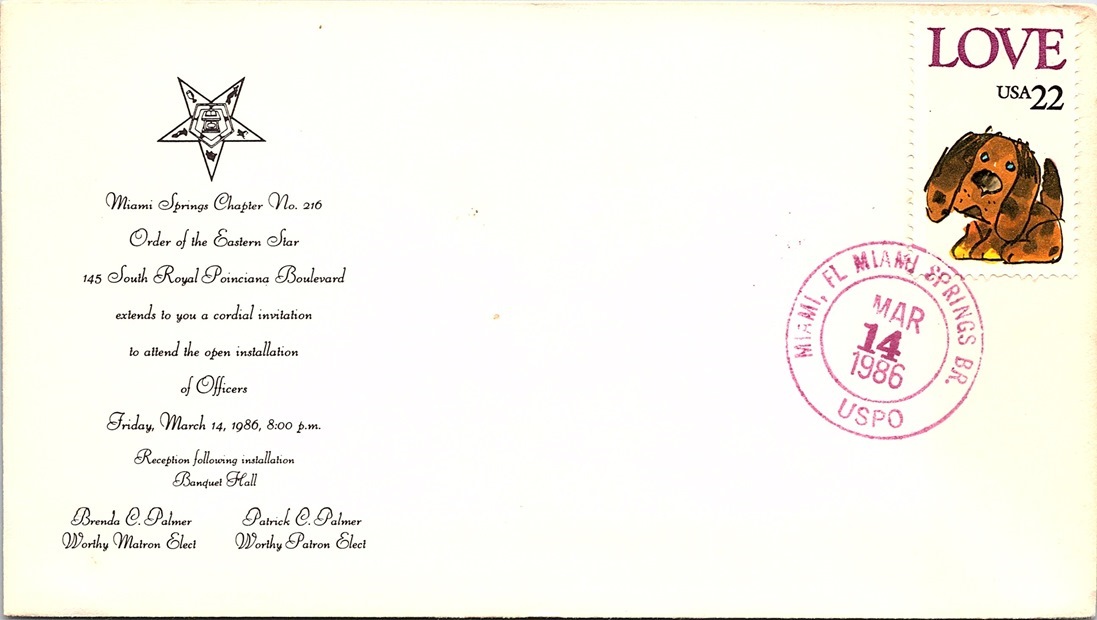 Miami Springs Chapter No. 216
Order of the Eastern Star
145 South Royal Poinciana Boulevard
extends to you a cordial invitation
to attend the open installation
of Officers
Friday, March 14, 1986, 8:00 p.m.
Reception following installation
Banquet Hall
Brenda C. Palmer
Worthy Matron Elect
Patrick C. Palmer
Worthy Patron Elect
LOVE
USA22
MIAMI, FL MIAMI SPRINGS BR.
MAR
14
1986
USPO